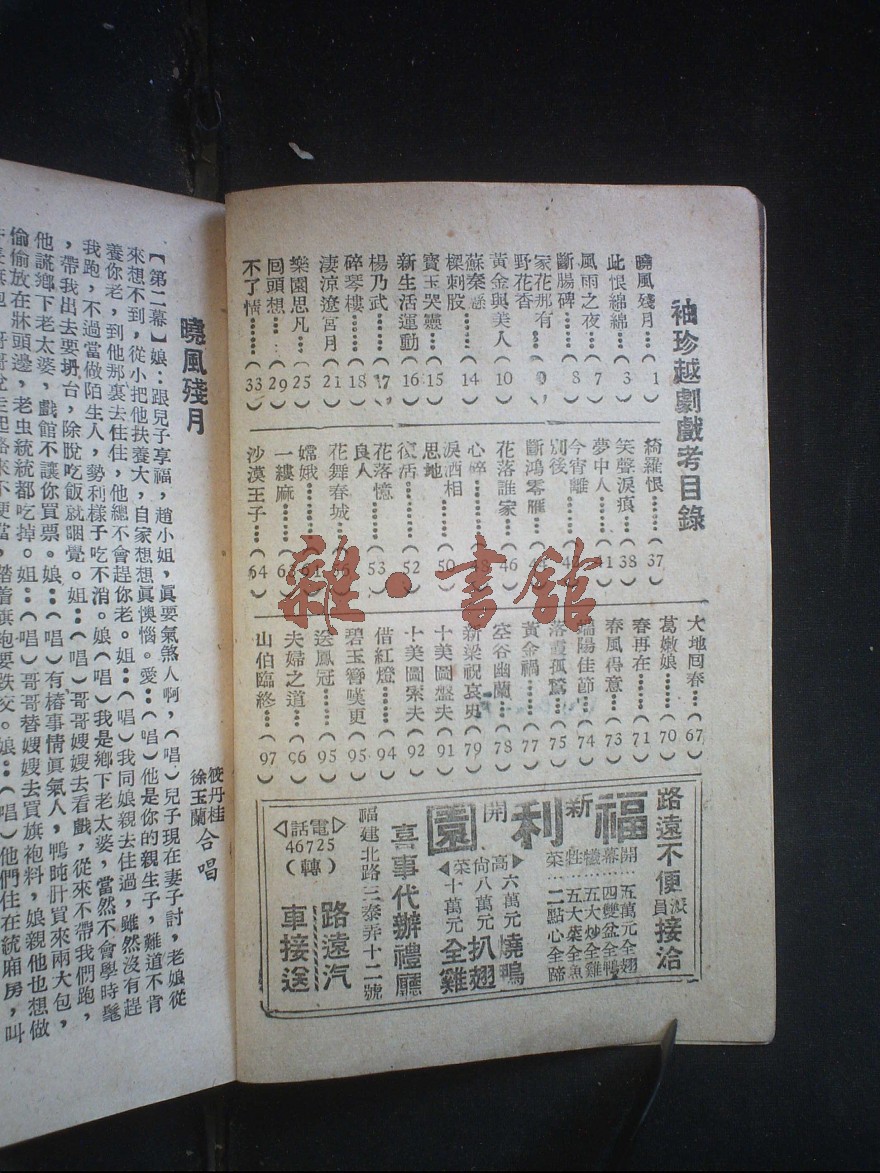 袖珍越劇戲考目錄
曉風殘月……(1)
此恨綿綿……(3)
風雨之夜……(7)
斷腸碑……(8)
家花那有
野花香……(9)
黃金與美人……(10)
蘇秦懸
樑刺股……(14)
寶玉哭靈……(15)
新生活運動(16)
楊乃武……(17)
碎琴樓……(18)
淒涼遼宮月(21)
樂園思凡……(25)
囘頭想……(29)
不了情……(33)
綺羅恨……(37)
笑聲淚痕……(38)
夢中人……(41)
今宵離
別後
斷鴻零雁
花落誰家……(46)
心碎……(48)
淚洒相
思地……(50)
復活……(52)
花落憶
良人……(53)
花舞春城……(56)
嫦娥……(61)
一縷麻……(63)
沙漠王子……(64)
大地囘春……(67)
葛嫩娘……(70)
春再在……(71)
春風得意……(73)
端陽佳節……(74)
落霞孤鶩……(75)
黃金禍……(77)
空谷幽蘭……(78)
新梁祝哀史(79)
十美圖盤夫(91)
十美圖索夫(92)
借紅燈……(94)
碧玉簪嘆更(95)
送鳳冠……(95)
夫婦之道……(96)
山伯臨終……(97)
路遠不便派員接洽
新開
福利園
開…五萬元全翅
幕…四雙盆全鴨
犧…五大炒全雞
牲…五大菜全魚
菜…二點心全蹄
高六萬元燒鴨
尙八萬元扒翅
菜十萬元全雞
喜事代辦禮廳
福建北路三泰弄十二號
電話
46725
(轉)
路遠汽
車接送
曉風殘月
筱丹桂
徐玉蘭
合唱
【第二幕】娘:跟兒子享福,趙小姐,眞要氣煞人啊,(唱)兒子現在妻子討,老娘從
來想不到,從小把他扶養大,自家想想眞懊惱。愛:(唱)他是你的親生子,難道不肯
養你老,到他那裏去住住,他總不會趕你老。姐:(唱)我同娘親去住過,雖然沒有趕
我跑,不過當做陌生人,勢利樣子吃不消。娘(唱)我是鄉下老太婆,當然不會學時髦
,帶我出去要坍台,除脫吃飯就睏覺。姐:(唱)哥哥嫂嫂去看戲,從來不帶我們跑,
他謊鄉下老太婆,戲館不讓你買票。娘:(唱)有樁事情眞氣人,鴨肫肝買來兩大包,
偷偷放在牀頭邊,老虫統統都吃掉。姐:(唱)哥哥替嫂嫂去買旗袍料,娘親他也想做
雜·書館